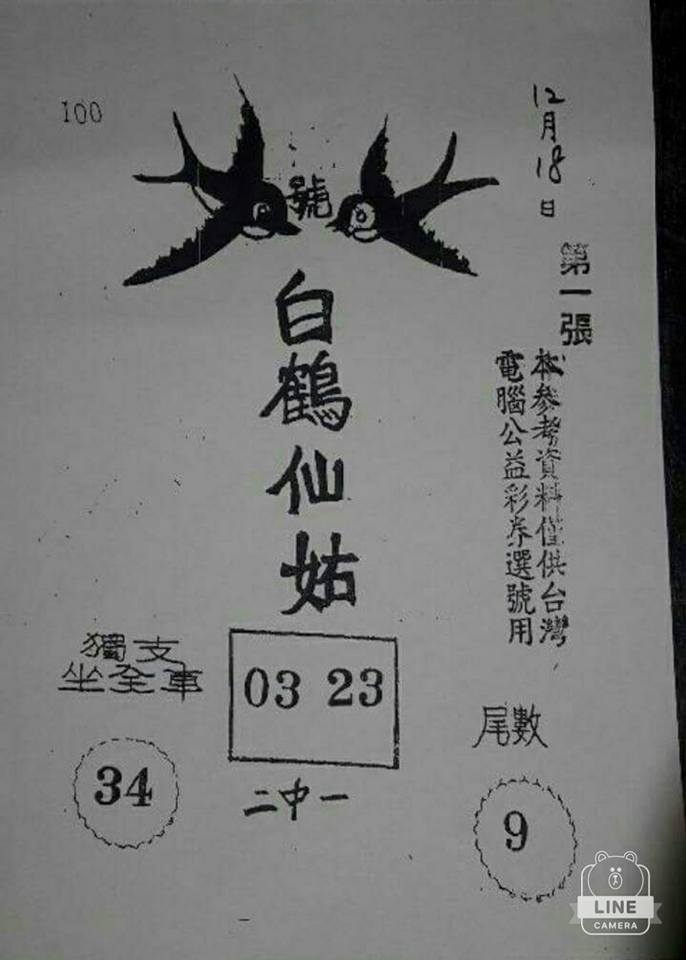 100
號
12月18日
第一張
本參考資料僅供台灣
電腦公益彩券選號用
白鶴仙姑
獨支
坐全車
34
03 23
二中一
尾數
9
LINE
CAMERA